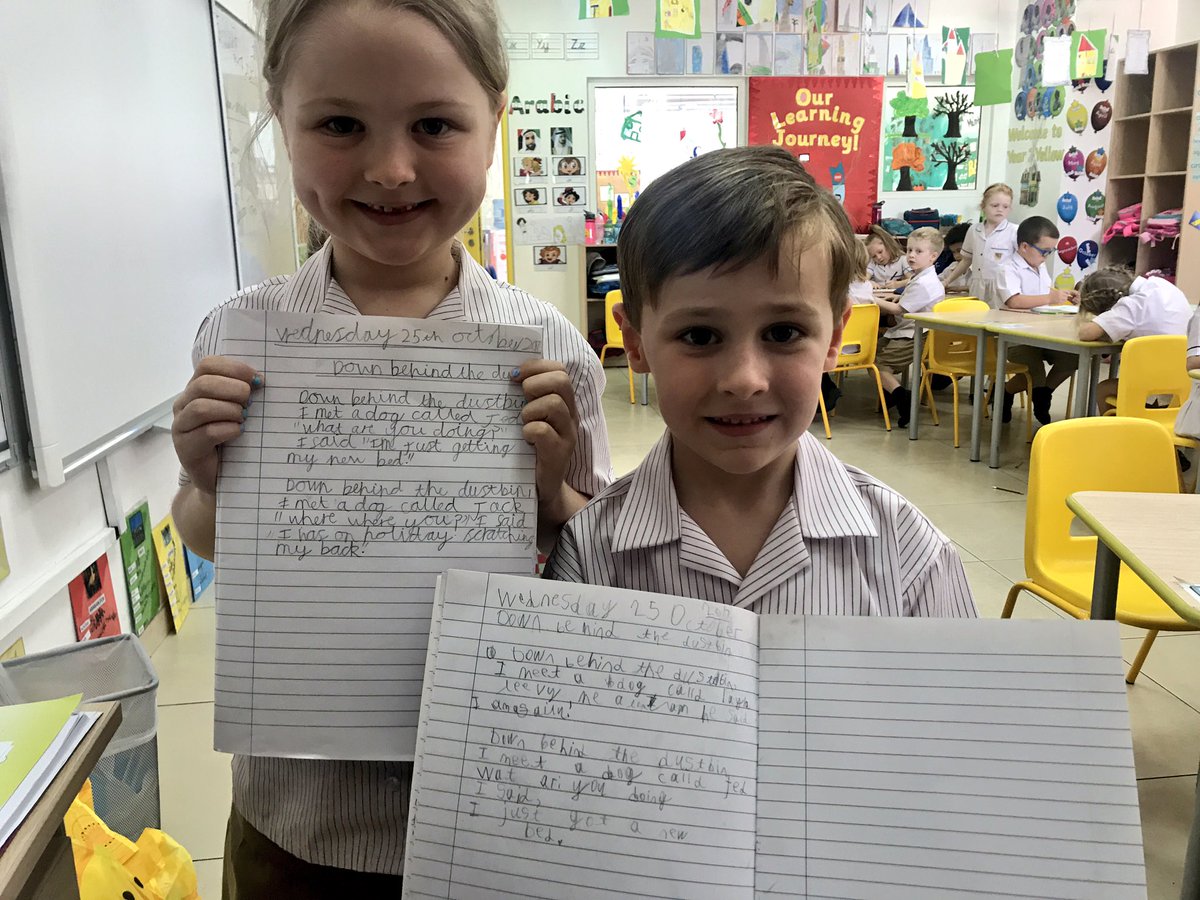 Yy
Zz
Arabic
Our
Learning
Journey!
Welcome to
Year 2 Yellow
Wednesday 25th october
Down behind the dus
Down behind the dustbin
I met a dog called
"what are you doing?"
I said "I'm Just getting
my new bed."
Down behind the dustbin,
I met a dog called Jack
"where where you?" I said
"I has on holiday scratching
my back."
Wednesday 25 October
Down behind the dustbin
Down behind the dustbin
I meet a dog calld
he said
I am again.
Down behind the dustbin
I meet a dog calld Jed
Wat are you doing
I said,
I just got a new
bed.